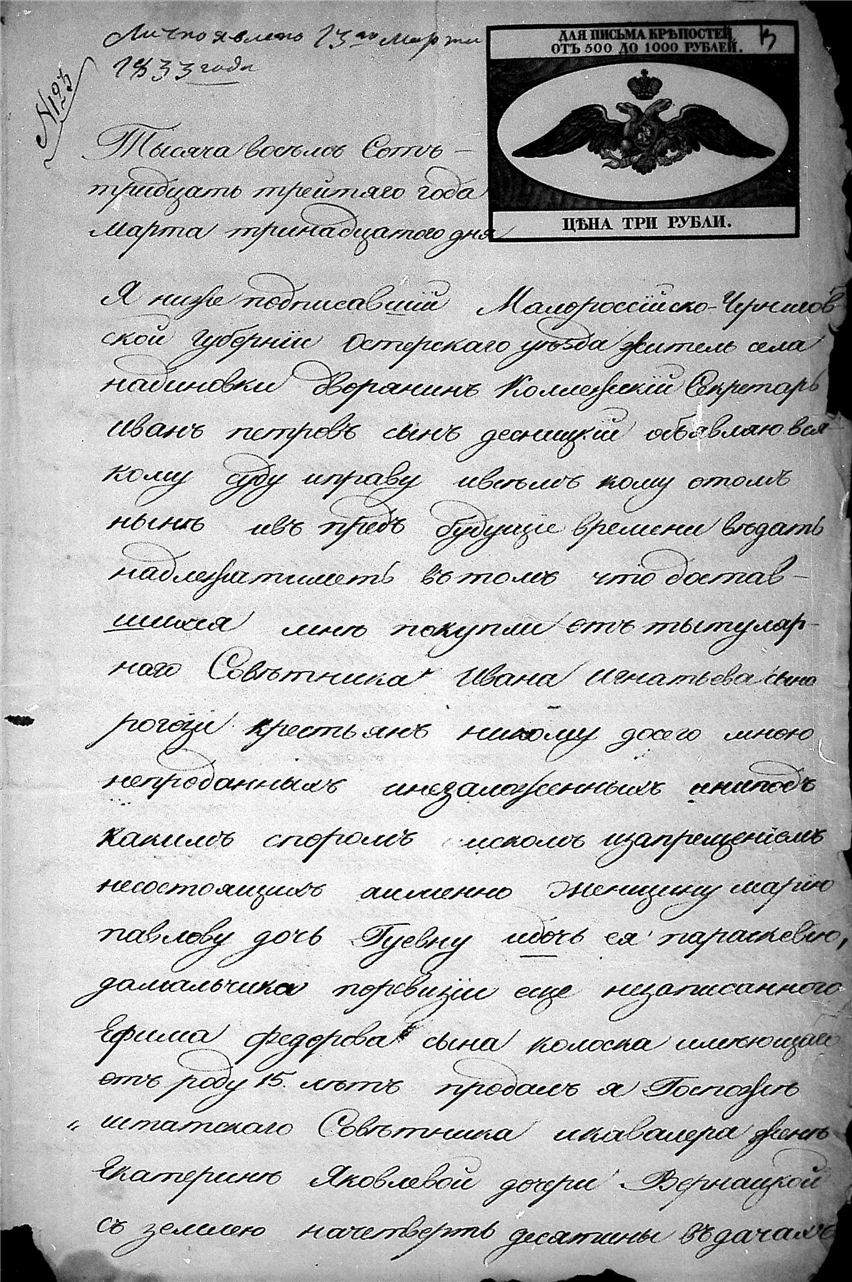 Лично явлено 13го Марта
1833 года
ДЛЯ ПИСЬМА КРѢПОСТЕЙ
ОТЪ 500 ДО 1000 РУБЛЕЙ.
ЦѢНА ТРИ РУБЛИ.
Тысяча восемъ Сотъ –
тридцать третяго года
Марта тринадцатого дня
Я ниже подписавшій Малороссійско-Чернигов
ской губерніи Остерскаго уѣзда житель села
надиновки Дворянинъ Коллежскій Секретарь
Иванъ петровъ сынъ десницкій объявляю вся-
кому суду иправу ивсѣмъ кому отомъ
нынѣ ивъ предъ будущіе времени вѣдать
надлежатиметь вътомъ что достав-
шихся мнѣ покупли отъ тытуляр-
наго Совѣтника Ивана игнатьева сына
рогози крестьянъ никому досего мною
непроданныхъ инезаложенныхъ ининодъ
какимъ споромъ искомъ изапрещеніемъ
несостоящихъ аименно женщину марію
павлову дочь Гуевну идочь ея параскевію,
дамальчика поревизіи еще незаписанного
Ефима федорова сына колоска имѣющаго
отъ роду 15. лѣтъ продалъ я Госпожѣ
„ штатского Совѣтника икавалера женѣ
Екатеринѣ Яковлевой дочери Вернацкой
съ землею начетверть десятины въдачахъ